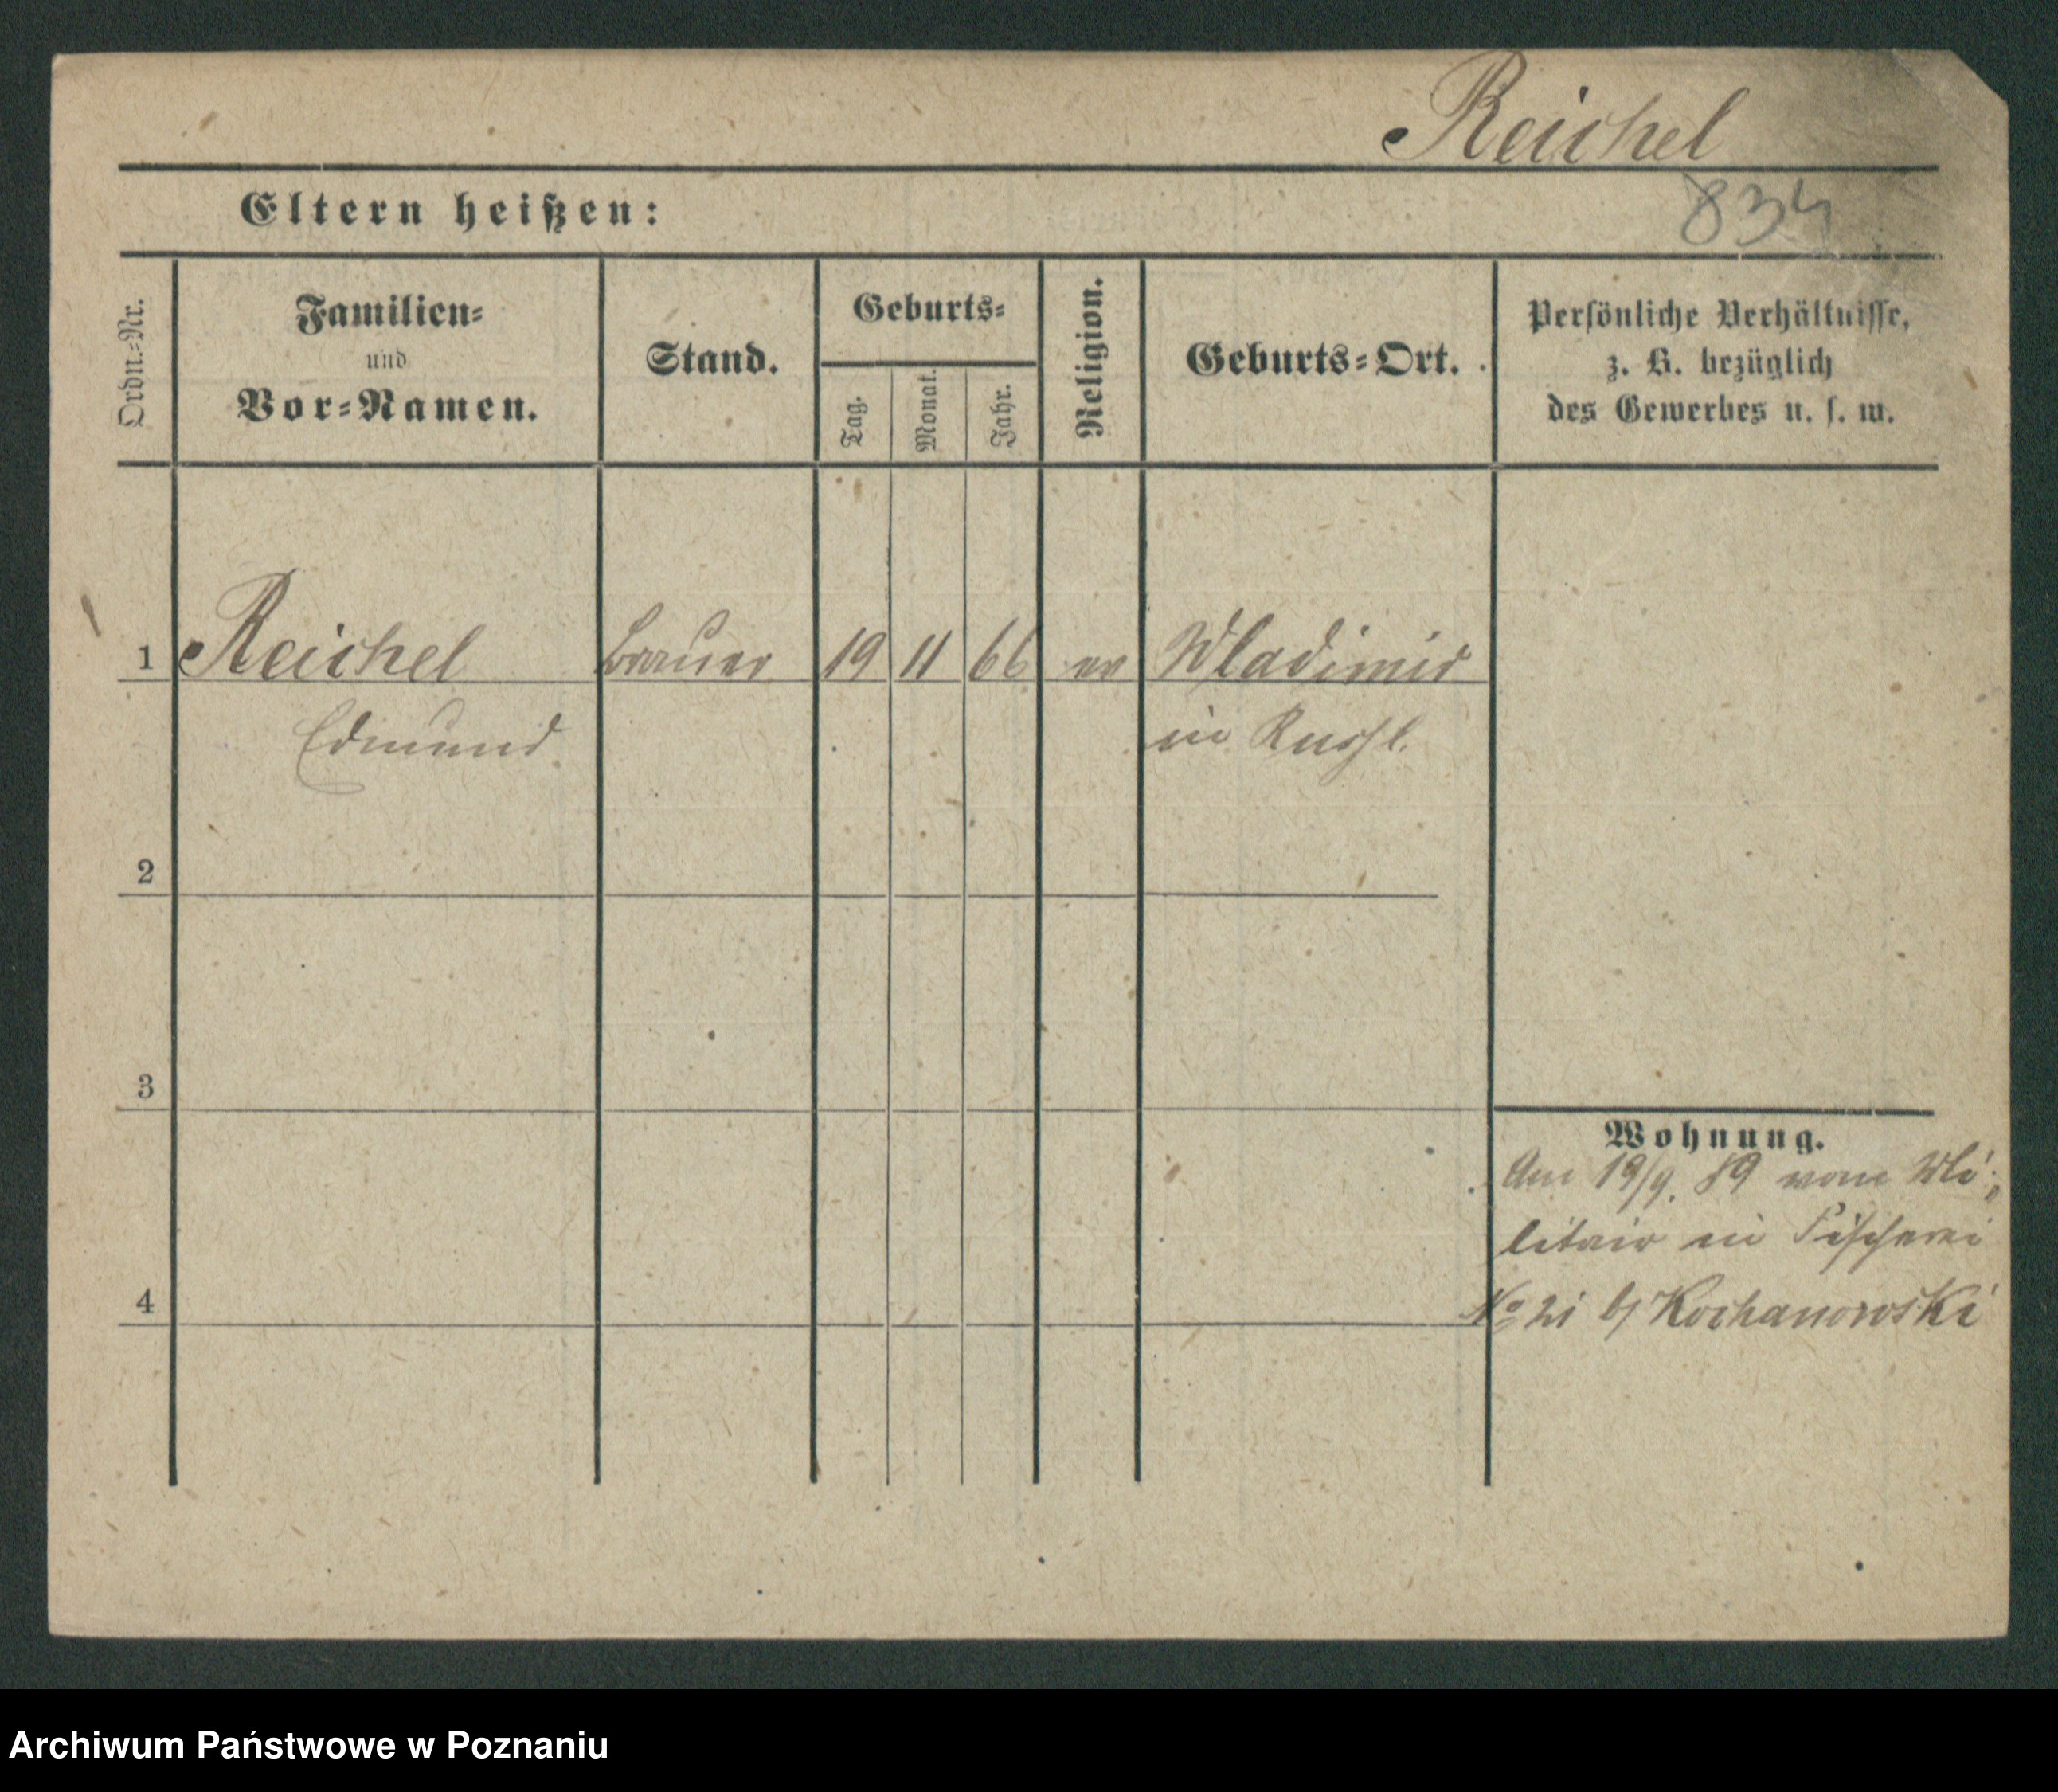 Reichel
Eltern heißen:
834
Ordn.-Nr.
Familien-
und
Vor-Namen.
Stand.
Geburts-
Tag.
Monat.
Jahr.
Religion.
Geburts-Ort.
Persönliche Verhältnisse,
z. B. bezüglich
des Gewerbes u. s. w.
1 Reichel Brauer 19 11 66 ev Wladimir
Edmund in Russl.
2
3
Wohnung.
Am 19/9. 89 vom Mi-
litair in Fischerei
4
No 21 b/ Kochanowski
Archiwum Państwowe w Poznaniu